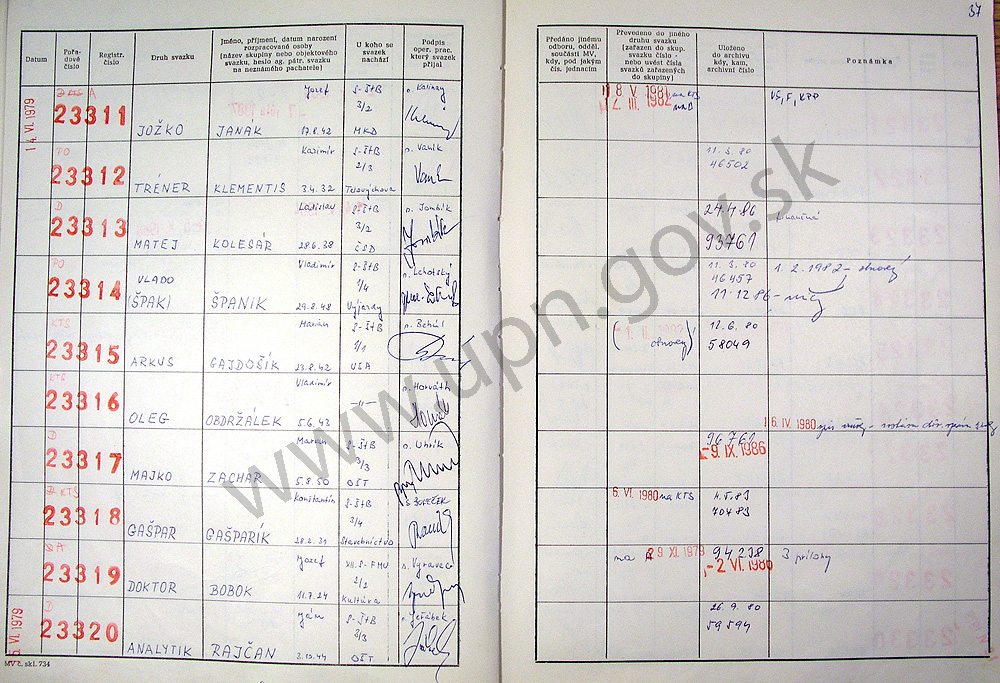 37
Datum
Pořadové číslo
Registr. číslo
Druh svazku
Jméno, příjmení, datum narození rozpracované osoby (název skupiny nebo objektového svazku, heslo ag. pátr. svazku na neznámého pachatele)
U koho se svazek nachází
Podpis oper. prac. který svazek přijal
Předáno jinému odboru, odděl. součásti MV, kdy, pod jakým čís. jednacím
Převedeno do jiného druhu svazku (zařazen do skup. svazku číslo - nebo uvést čísla svazků zařazených do skupiny)
Uloženo do archivu kdy, kam, archivní číslo
Poznámka
14. VI. 1979
A
23311
JOŽKO
Jozef
JANÁK 17.8.42
S-ŠtB
3/2
MKD
n. Kalinay
8 V. 1981 na KTS
2. III. 1982
VŠ, F, KPP
PO
23312
TRÉNER
Kazimír
KLEMENTIS 3.4.32
S-ŠtB
2/3
Telovýchova
n. Vaník
11. 3. 80
46502
D
23313
MATEJ
Ladislav
KOLESÁR 28.6.38
S-ŠtB
3/2
ČSD
n. Jombík
24.4.86
93761
PO
23314
VLADO
(ŠPAKI)
Vladimír
ŠPANIK 29.8.48
S-ŠtB
1/4
Výjazdy
n. Lehotský
11. 3. 80
46457
11.12.86
1. 2. 1982 - obnový
KTS
23315
ARKUS
Marián
GAJDOŠIK 23.8.42
S-ŠtB
2/1
USA
n. Behúl
(obnový)
12. 6. 80
58049
KTS
23316
OLEG
Vladimír
OBDRŽÁLEK 5.6.43
-"-
n. Horváth
16. IV. 1980
D
23317
MAJKO
Marián
ZACHAR 5.8.50
S-ŠtB
3/3
OŠT
n. Uhrík
96761
-9. IX. 1986
KTS
23318
GAŠPAR
Konštantín
GAŠPARÍK 28.2.31
S-ŠtB
3/4
Stavebníctvo
6. VI. 1980 na KTS
4.5.83
70483
A
23319
DOKTOR
Jozef
BOBOK 11.7.24
XII.S-FMV
2/2
Kultúra
n. Vyravec
na A 29 XI. 1979
94238
-2. VI. 1986
3 prílohy
5. VI. 1979
D
23320
ANALYTIK
Ján
RAJČAN 3.10.44
S-ŠtB
3/3
OŠT
n. Jeřábek
26. 9. 80
59594
MV č. skl. 734
www.upn.gov.sk